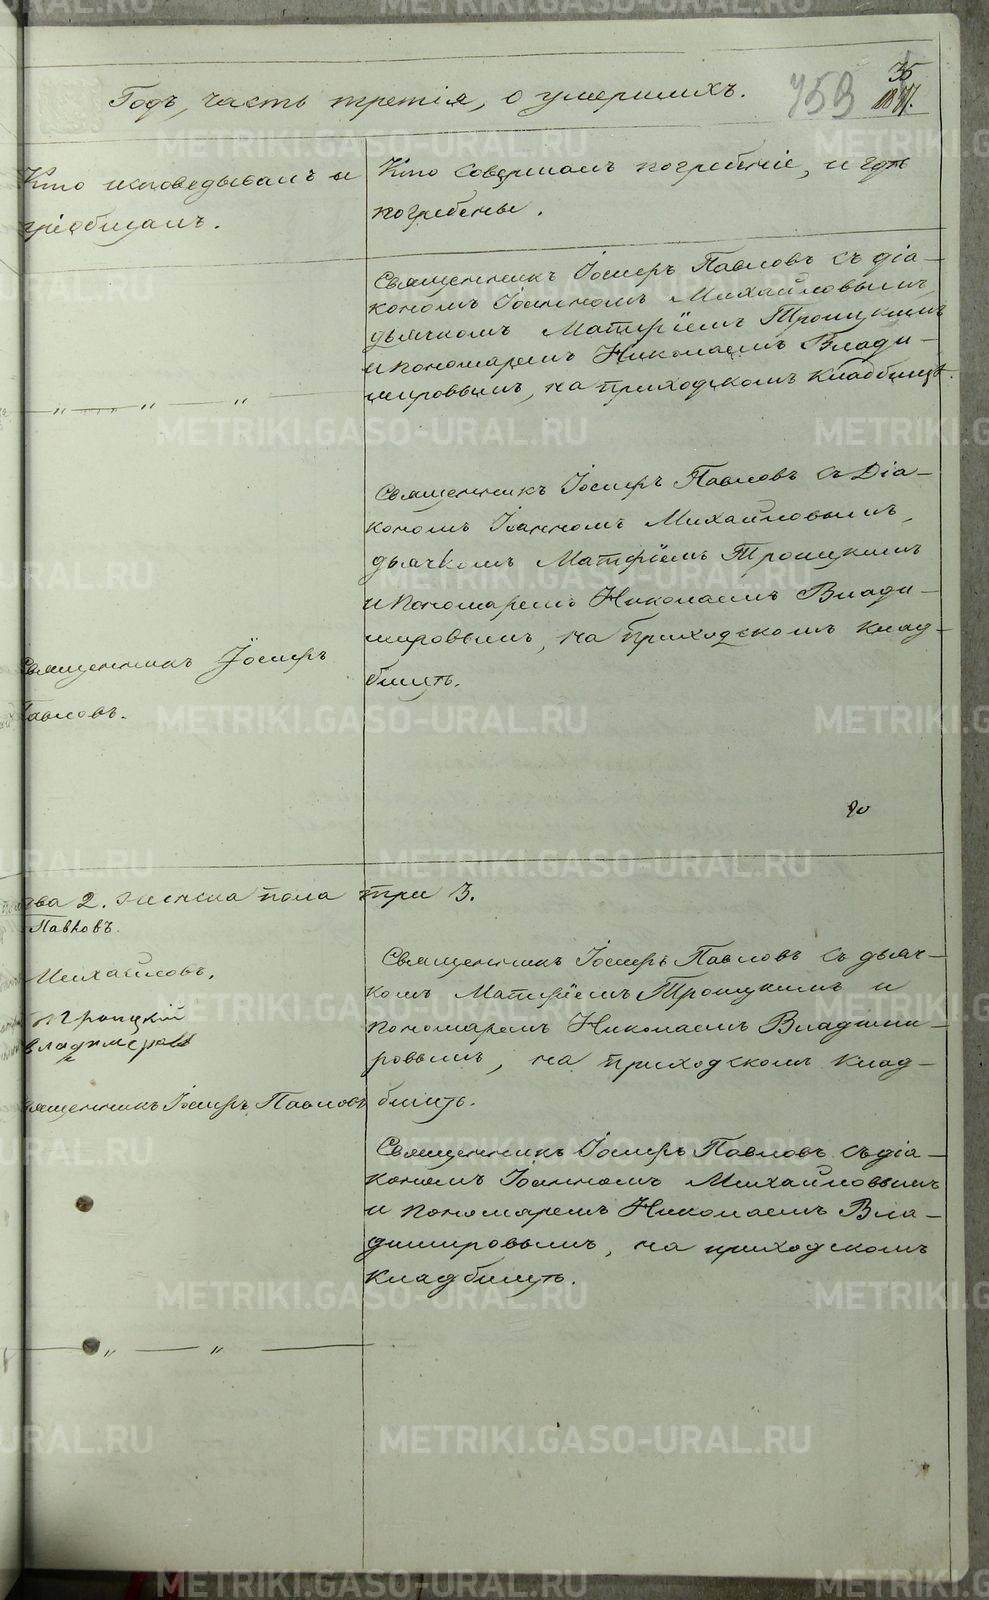 Годъ, часть третія, о умершихъ.
759
35
Кто исповедывалъ и
пріобщалъ.
Кто совершалъ погребеніе, и гдѣ
погребены.
Священникъ Іосифъ Павловъ съ діа-
кономъ Іоанномъ Михайловымъ,
дьячкомъ Матѳіемъ Троицкимъ
и пономаремъ Николаемъ Влади-
мировымъ, на приходскомъ кладбищѣ.
— „ — „ — „ —
Священникъ Іосифъ Павловъ съ Діа-
кономъ Іоанномъ Михайловымъ,
дьячкомъ Матѳіемъ Троицкимъ
и пономаремъ Николаемъ Влади-
мировымъ, на приходскомъ клад-
бищѣ.
Священникъ Іосифъ
Павловъ.
два 2. женска пола три 3.
Павловъ.
Михайловъ.
Троицкій
Владимеровъ
Священникъ Іосифъ Павловъ
Священникъ Іосифъ Павловъ съ дьяч-
комъ Матѳіемъ Троицкимъ и
пономаремъ Николаемъ Владими-
ровымъ, на приходскомъ клад-
бищѣ.
Священникъ Іосифъ Павловъ съ діа-
кономъ Іоанномъ Михайловымъ
и пономаремъ Николаемъ Вла-
димировымъ, на приходскомъ
кладбищѣ.
— „ — „ —
METRIKI.GASO-URAL.RU